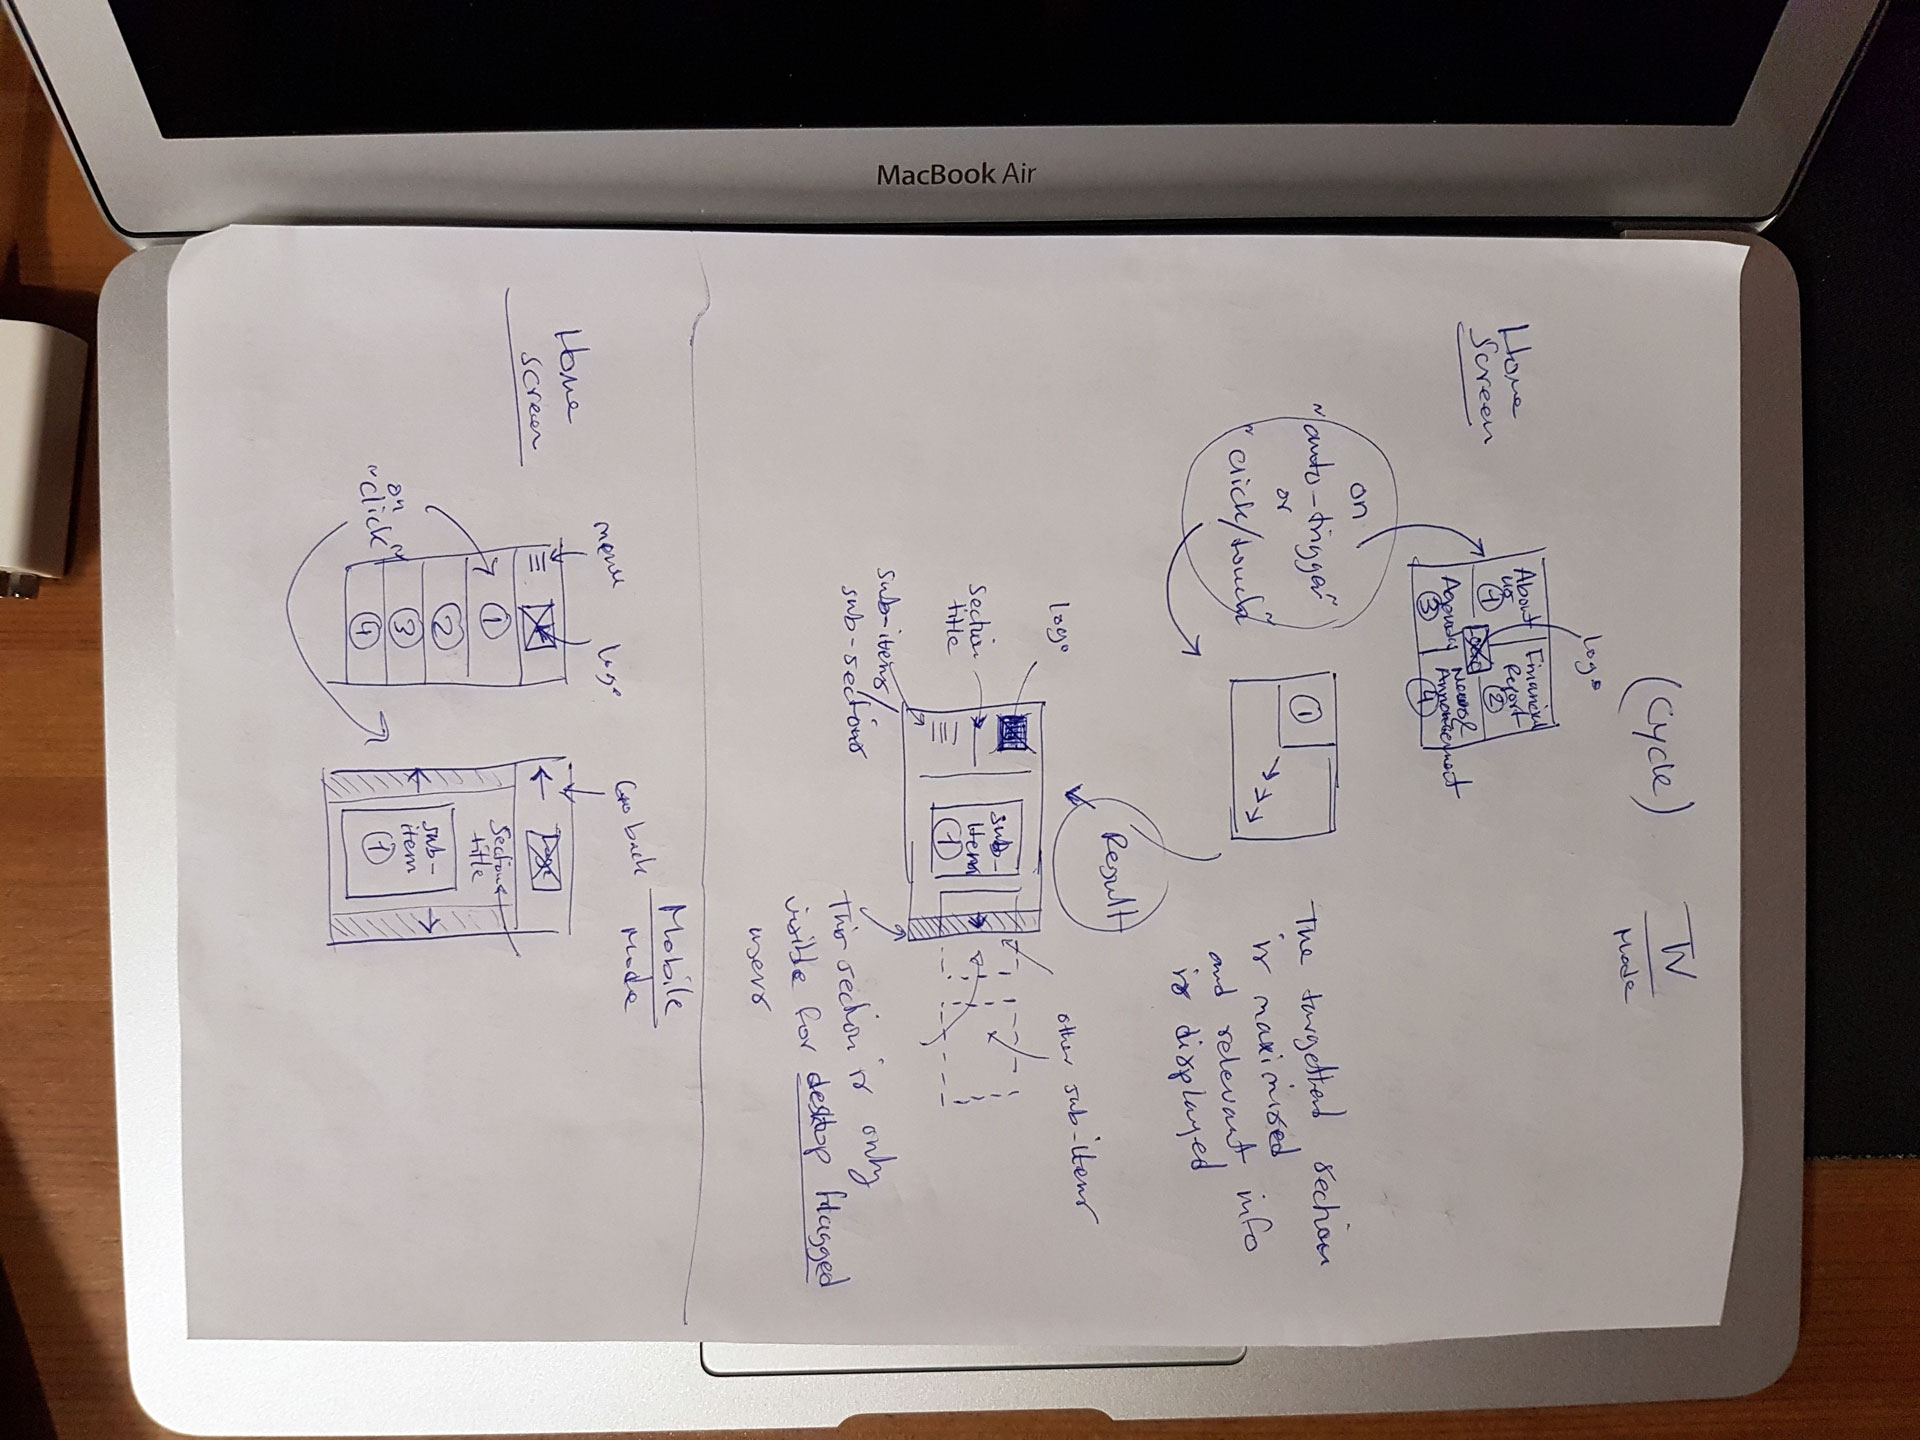 MacBook Air
(Cycle)
TV
Mode
Home
Screen
Logo
About
us
1
Financial
Report
2
Logo
3
News &
Announcement
4
on
"auto-trigger"
or
"click/touch"
1
The targetted section
is maximised
and relevant info
is displayed
Result
logo
Section
title
sub-items/
sub-sections
sub-
item
1
other sub-items
This section is only
visible for desktop flagged
users
Mobile
Mode
Home
screen
menu
logo
on
"click"
1
2
3
4
Go back
Logo
Section
title
sub-
item
1